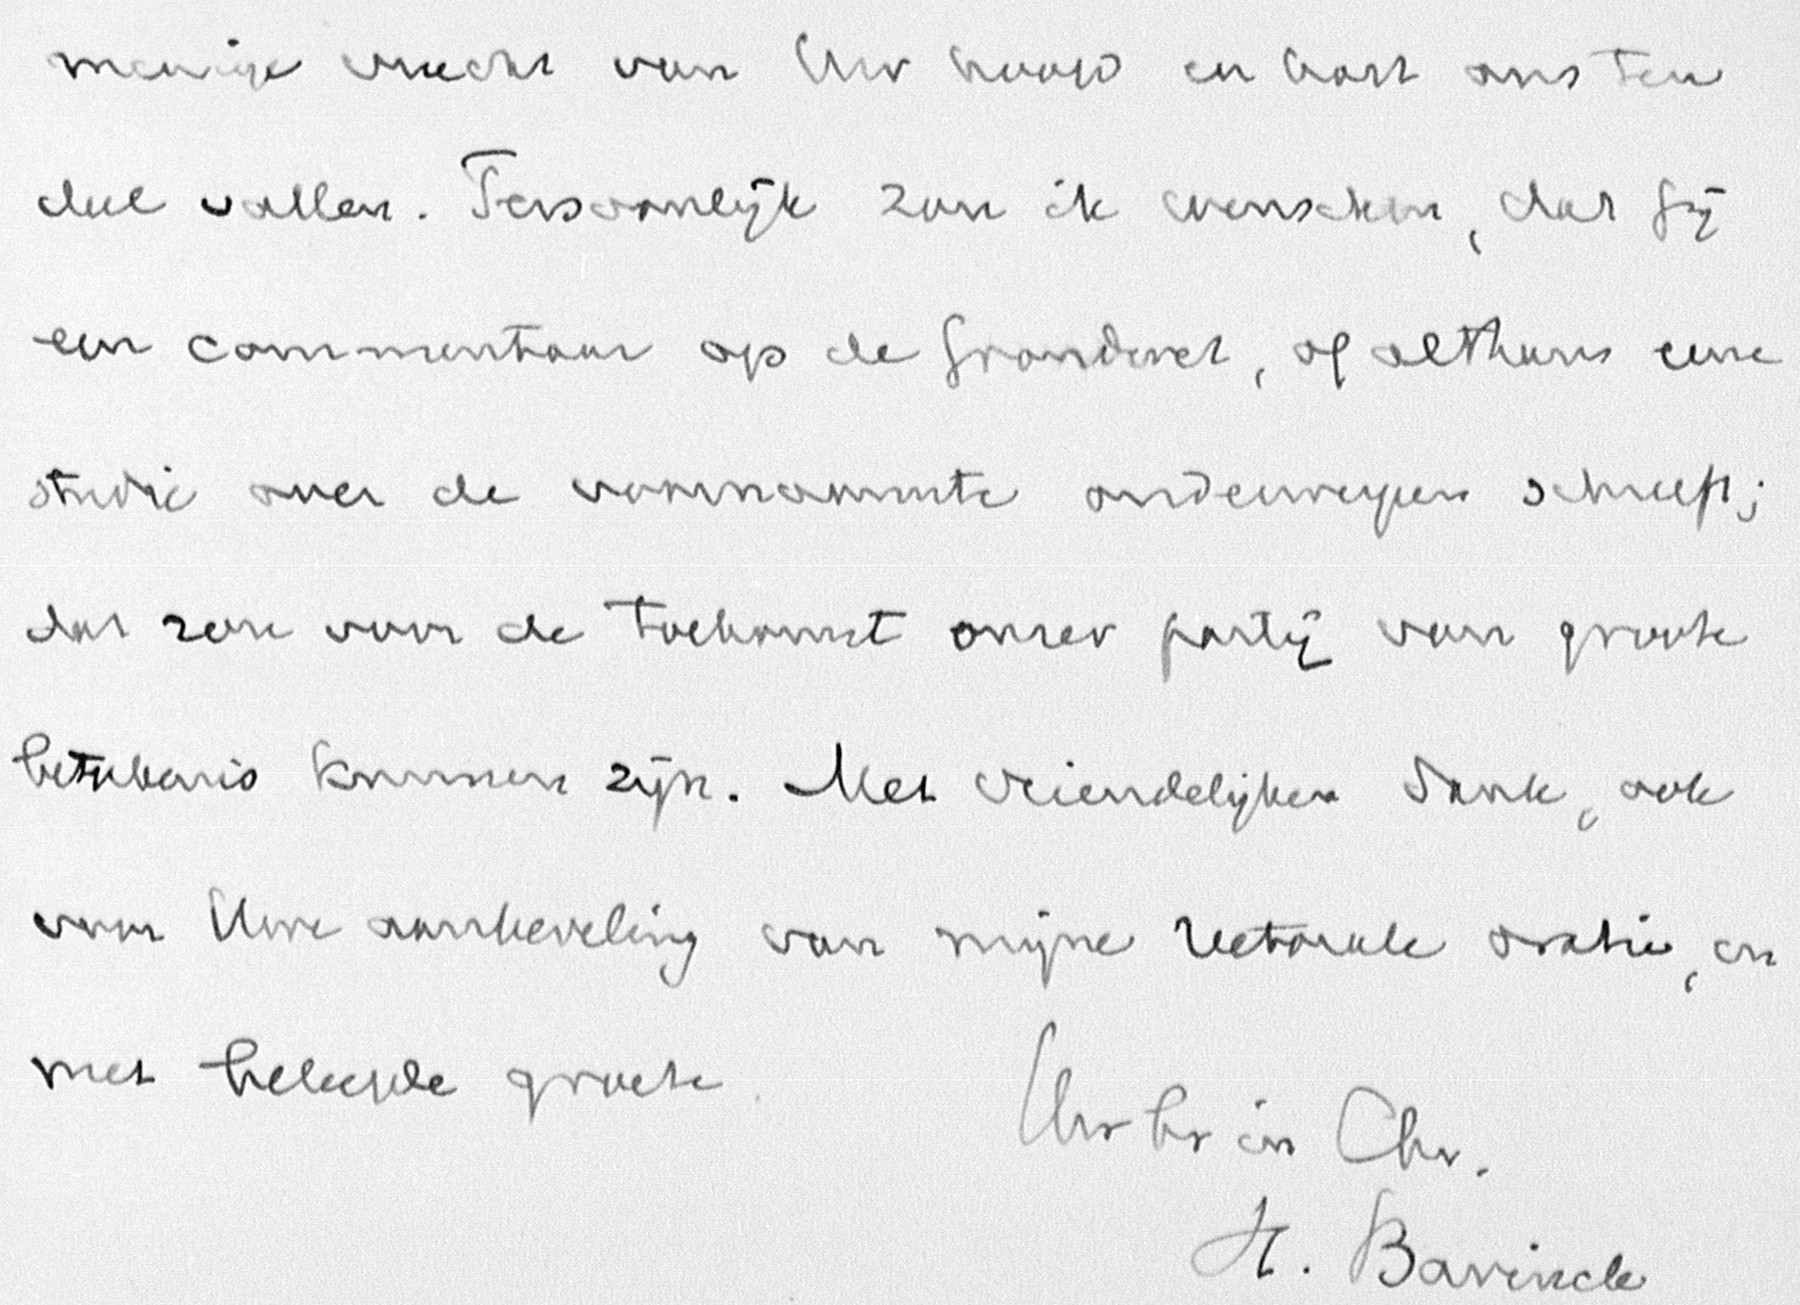 menige vrucht van Uw hoofd en hart ons ten
deel vallen. Persoonlijk zou ik wenschen, dat gij
een commentaar op de Grondwet, of althans eene
studie over de voornaamste onderwerpen schreeft;
dat zou voor de toekomst onzer partij van groote
beteekenis kunnen zijn. Met vriendelijken dank, ook
voor Uwe aanbeveling van mijne rectorale oratie, en
met beleefde groete
Uw br in Chr.
H. Bavinck